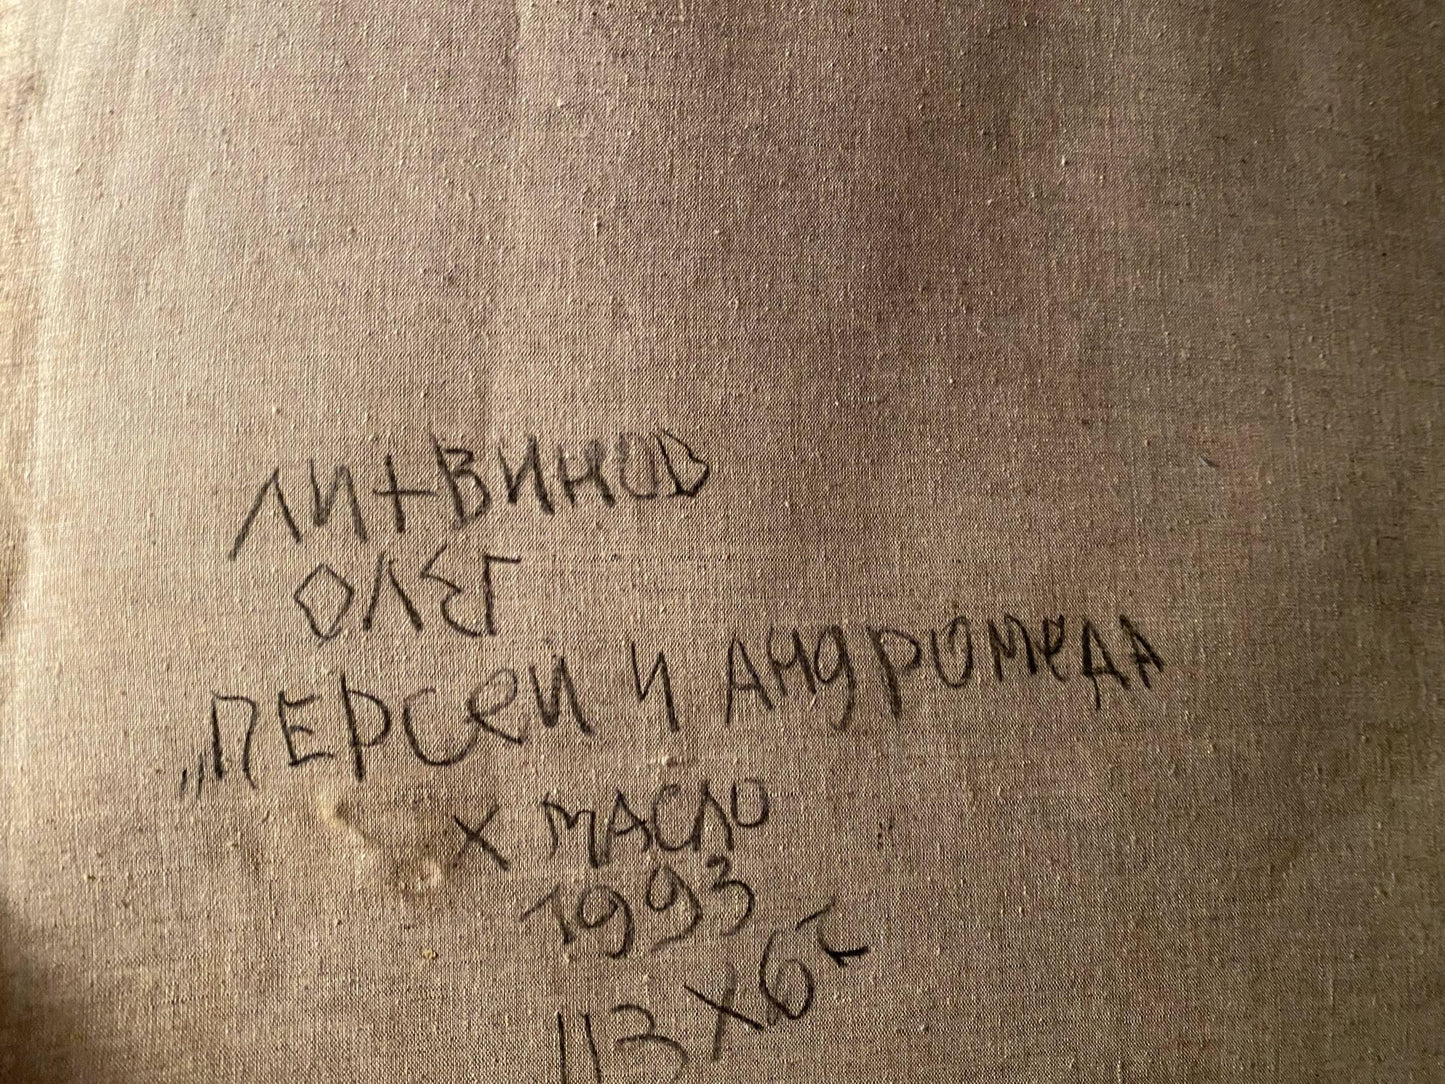 ЛИТВИНОВ
ОЛЕГ
„ПЕРСЕЙ И АНДРОМЕДА
Х МАСЛО
1993
113 X 65